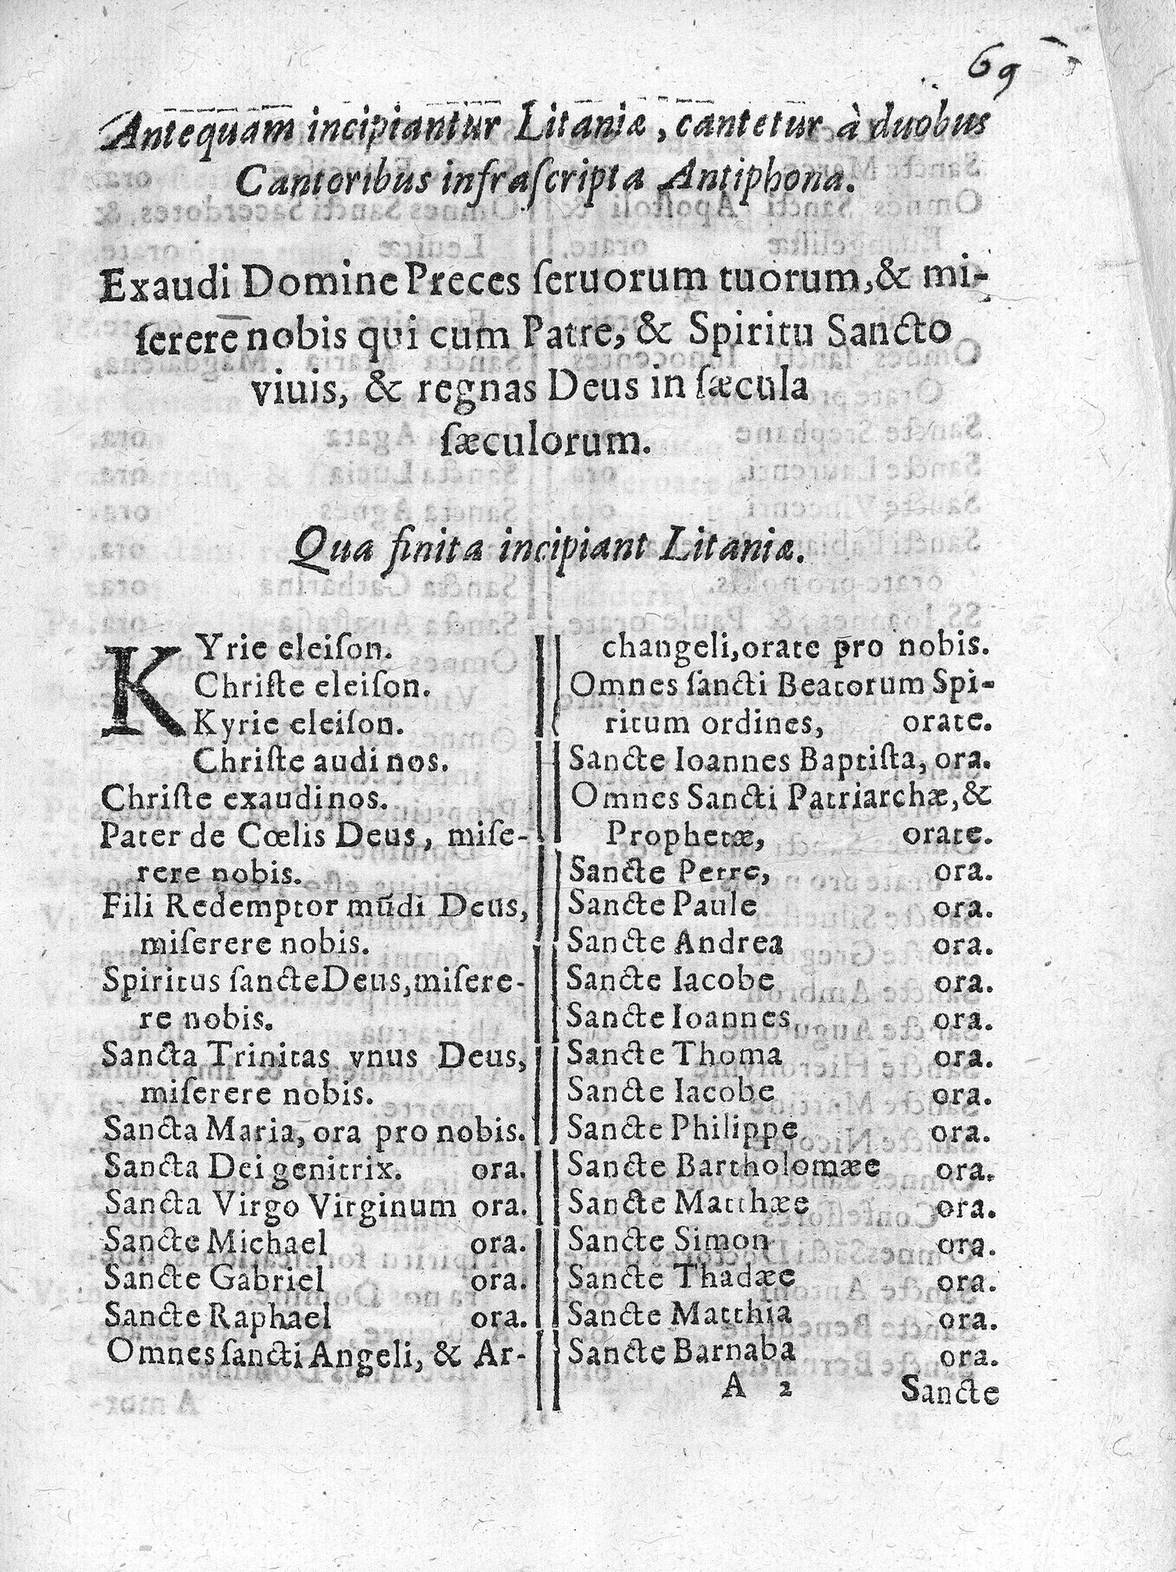 69
Antequam incipiantur Litaniæ, cantetur à duobus
Cantoribus infraſcripta Antiphona.
Exaudi Domine Preces ſeruorum tuorum,& mi-
ſerere nobis qui cum Patre, & Spiritu Sancto
viuis, & regnas Deus in ſæcula
ſæculorum.
Qua finita incipiant Litaniæ.
KYrie eleiſon.
Chriſte eleiſon.
Kyrie eleiſon.
Chriſte audi nos.
Chriſte exaudi nos.
Pater de Cœlis Deus, miſe-
rere nobis.
Fili Redemptor mūdi Deus,
miſerere nobis.
Spiritus ſancte Deus,miſere-
re nobis.
Sancta Trinitas vnus Deus,
miſerere nobis.
Sancta Maria, ora pro nobis.
Sancta Dei genitrix. ora.
Sancta Virgo Virginum ora.
Sancte Michael ora.
Sancte Gabriel ora.
Sancte Raphael ora.
Omnes ſancti Angeli, & Ar-
changeli,orate pro nobis.
Omnes ſancti Beatorum Spi-
rituum ordines, orate.
Sancte Ioannes Baptiſta, ora.
Omnes Sancti Patriarchæ,&
Prophetæ, orate.
Sancte Petre, ora.
Sancte Paule ora.
Sancte Andrea ora.
Sancte Iacobe ora.
Sancte Ioannes ora.
Sancte Thoma ora.
Sancte Iacobe ora.
Sancte Philippe ora.
Sancte Bartholomæe ora.
Sancte Matthæe ora.
Sancte Simon ora.
Sancte Thadæe ora.
Sancte Matthia ora.
Sancte Barnaba ora.
A 2 Sancte